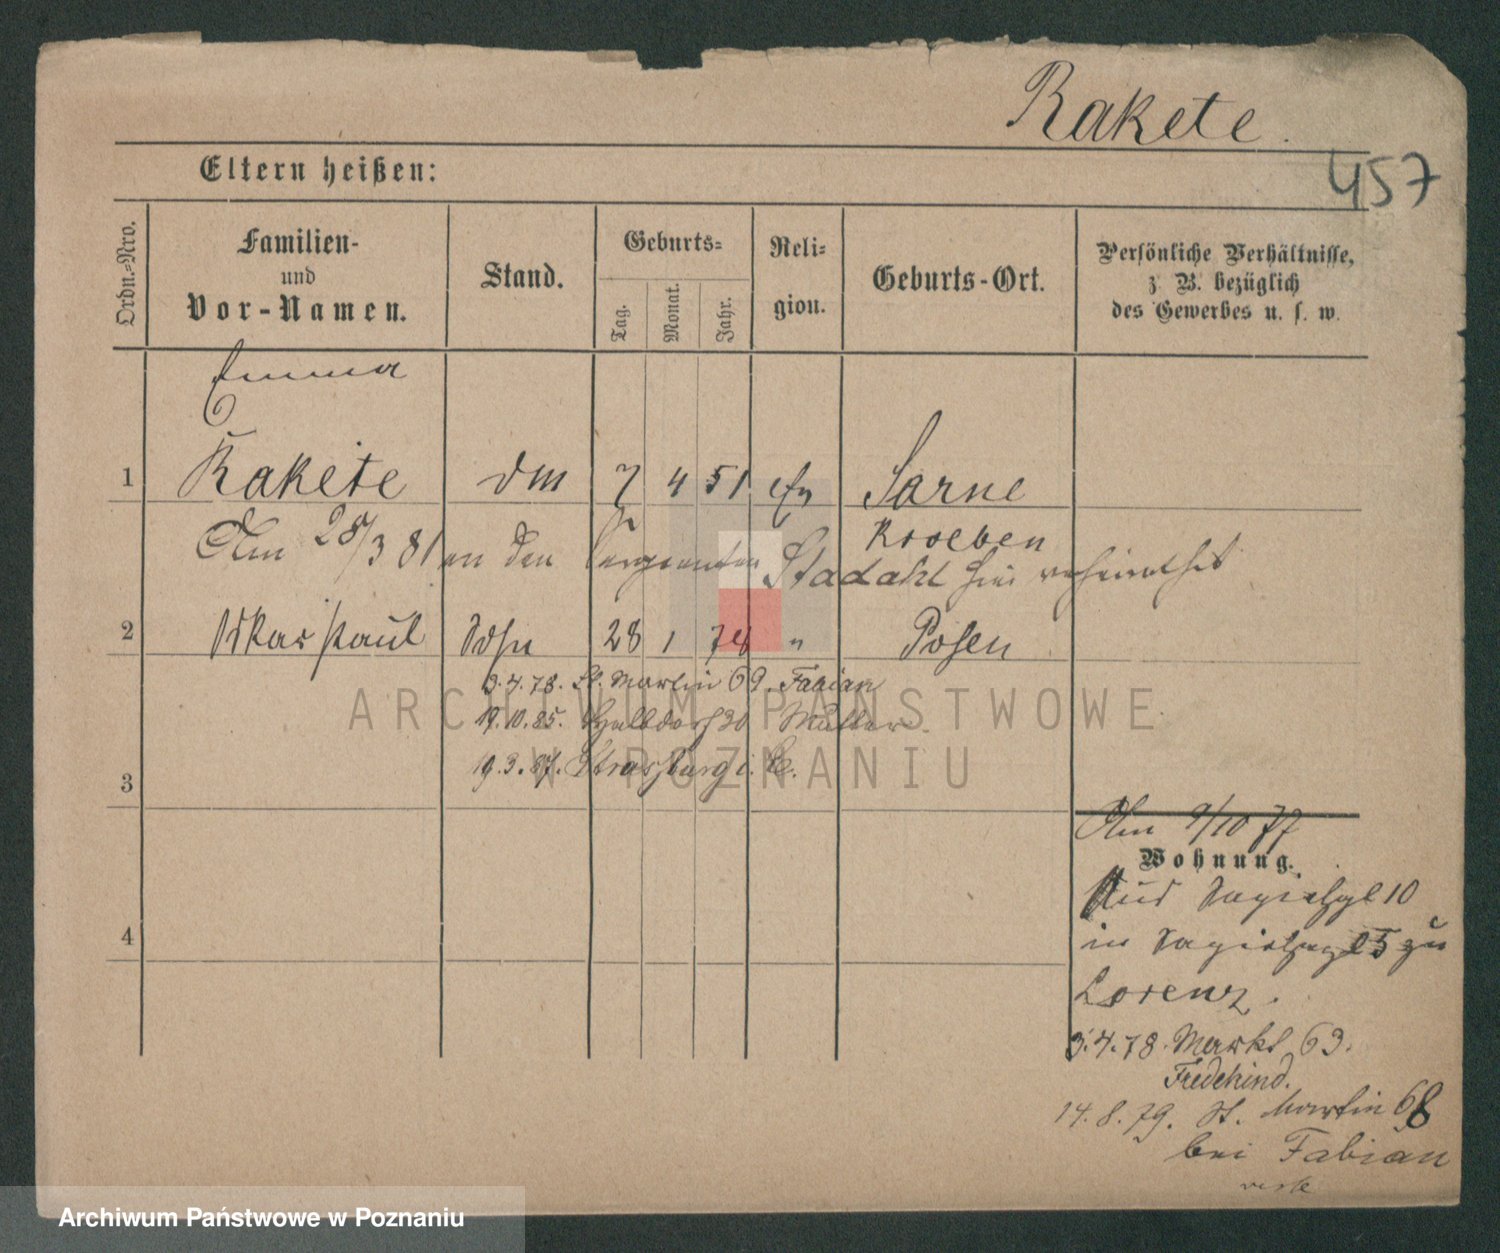 Rakete.
457
Eltern heißen:
Ordn.-Nro.
Familien-
und
Vor-Namen.
Stand.
Geburts-
Tag.
Monat.
Jahr.
Reli-
gion.
Geburts-Ort.
Persönliche Verhältnisse,
z. B. bezüglich
des Gewerbes u. s. w.
Emma
1 Rakete dm 7 4 51 Sarne
Kroeben
Am 28/3 81 an den Sergeanten Stadahl hier verheirathet
2 Oskar Paul Sohn 28 1 78 " Posen
3.4.78. St. Martin 69. Fabian
19.10.85. Halbdorf 30 Müller.
19.3.87. Strassburg i. E.
3
4
Am 9/10 77
Wohnung.
Aus 10
in 25 zu
Lorenz.
3.4.78. Markt 63.
Fredekind.
14.8.79. St. Martin 68
bei Fabian
ARCHIWUM PAŃSTWOWE
W POZNANIU
Archiwum Państwowe w Poznaniu